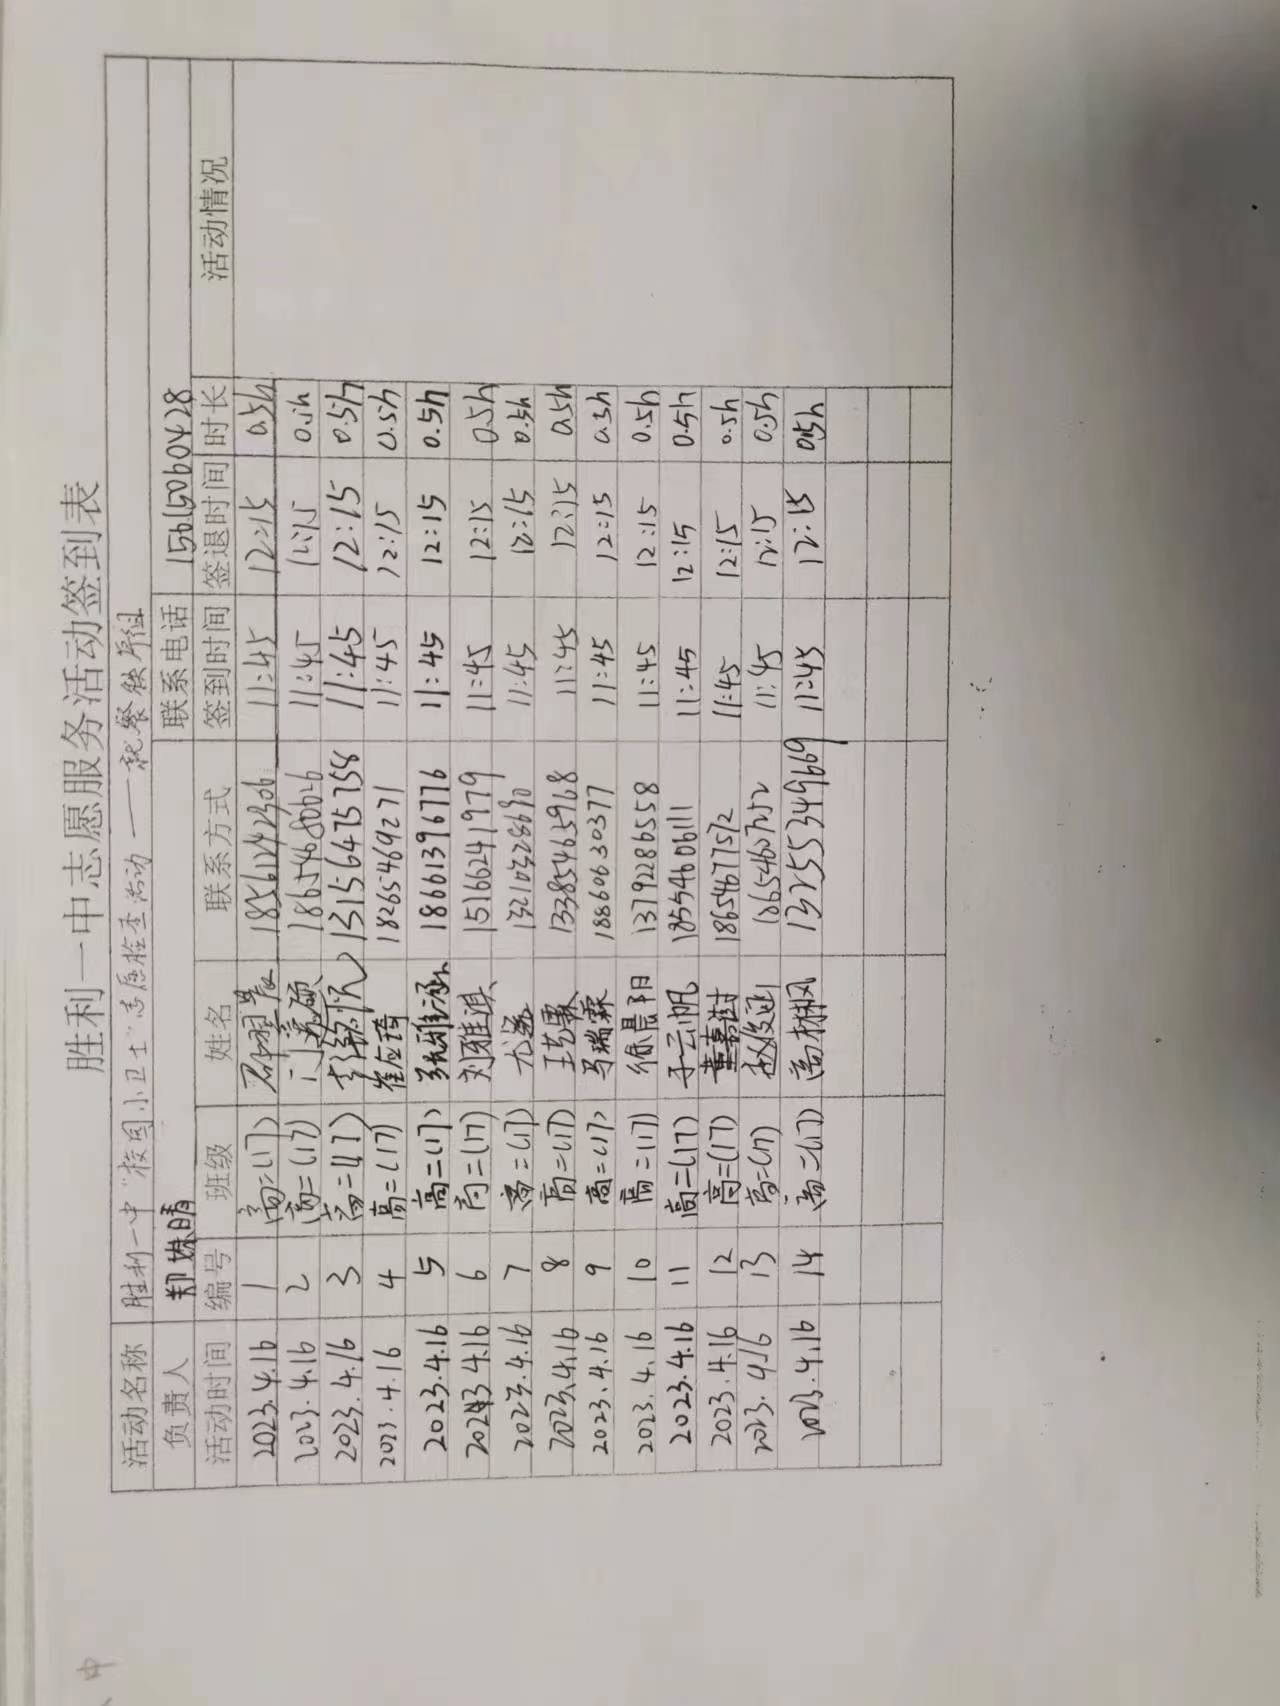 胜利一中志愿服务活动签到表
活动名称 胜利一中"校园小卫士"志愿检查活动——就餐秩序组
负责人 郑姝晴 联系电话 15615060428
活动时间 编号 班级 姓名 联系方式 签到时间 签退时间 时长 活动情况
2023.4.16 1 高二(17) 石翌晨 18561242306 11:45 12:15 0.5h
2023.4.16 2 高二(17) 18654680626 11:45 12:15 0.5h
2023.4.16 3 高二(17) 13156475758 11:45 12:15 0.5h
2023.4.16 4 高二(17) 崔应琦 18265469271 11:45 12:15 0.5h
2023.4.16 5 高二(17) 张雅涵 18661396776 11:45 12:15 0.5h
2023.4.16 6 高二(17) 刘雅淇 15166241979 11:45 12:15 0.5h
2023.4.16 7 高二(17) 尤 11:45 12:15 0.5h
2023.4.16 8 高二(17) 王艺霖 13385465968 11:45 12:15 0.5h
2023.4.16 9 高二(17) 马瑞霖 18860630377 11:45 12:15 0.5h
2023.4.16 10 高二(17) 徐晨阳 13792286558 11:45 12:15 0.5h
2023.4.16 11 高二(17) 于云帆 18554606111 11:45 12:15 0.5h
2023.4.16 12 高二(17) 董嘉澍 18654677572 11:45 12:15 0.5h
2023.4.16 13 高二(17) 赵俊延 18654607252 11:45 12:15 0.5h
2023.4.16 14 高二(17) 高彬风 13255349669 11:45 12:15 0.5h
中